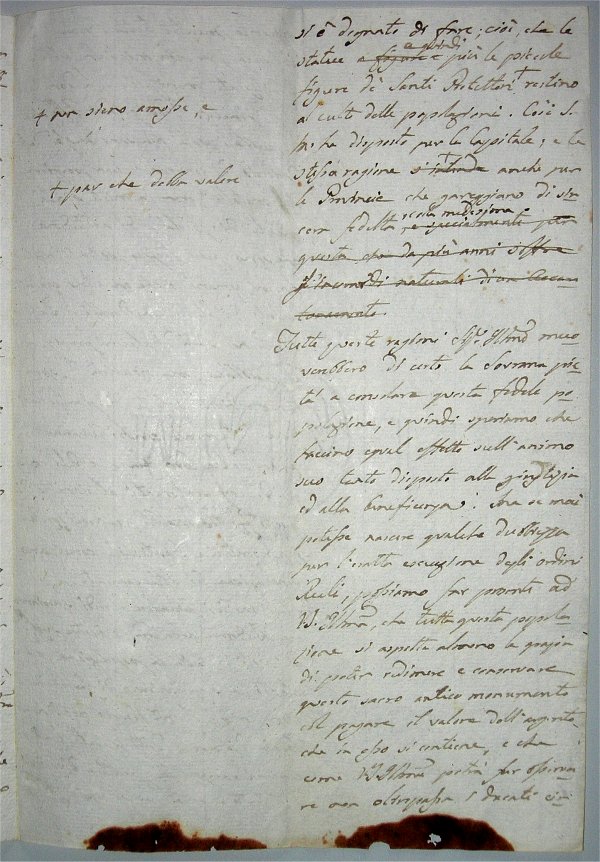 + non sieno amosse, e
+ par che della valere
si è degnato di fare; cioè, che le
statue e figure e quindi più le piccole
figure de' Santi Protettori + restino
al culto delle popolazioni. Così S.
M. ha disposto per la Capitale; e la
stessa ragione si anche per
le Provincie che gareggiano di sin
cera fedeltà colla medesima, e specialmente per
questa che da più anni soffre
naturali di un
Tutte queste ragioni Sig.r Ill.mo muo
verebbero di certo la Sovrana pie
tà a consolare questa fedele po
polazione, e quindi speriamo che
faccino egual effetto sull'animo
suo tanto disposto alla giustizia
ed alla beneficenza. Ma se mai
potesse nascere qualche dubbiezza
per l'esatta esecuzione degli ordini
Reali, possiamo far presenti ad
V.S. Ill.ma, che tutta questa popola
zione si aspetta almeno la grazia
di poter redimere e conservare
questo sacro antico monumento
col pagare il valore dell'argento,
che in esso si contiene, e che
come V.S. Ill.ma potrà far osserva
re non oltrepassa i ducati